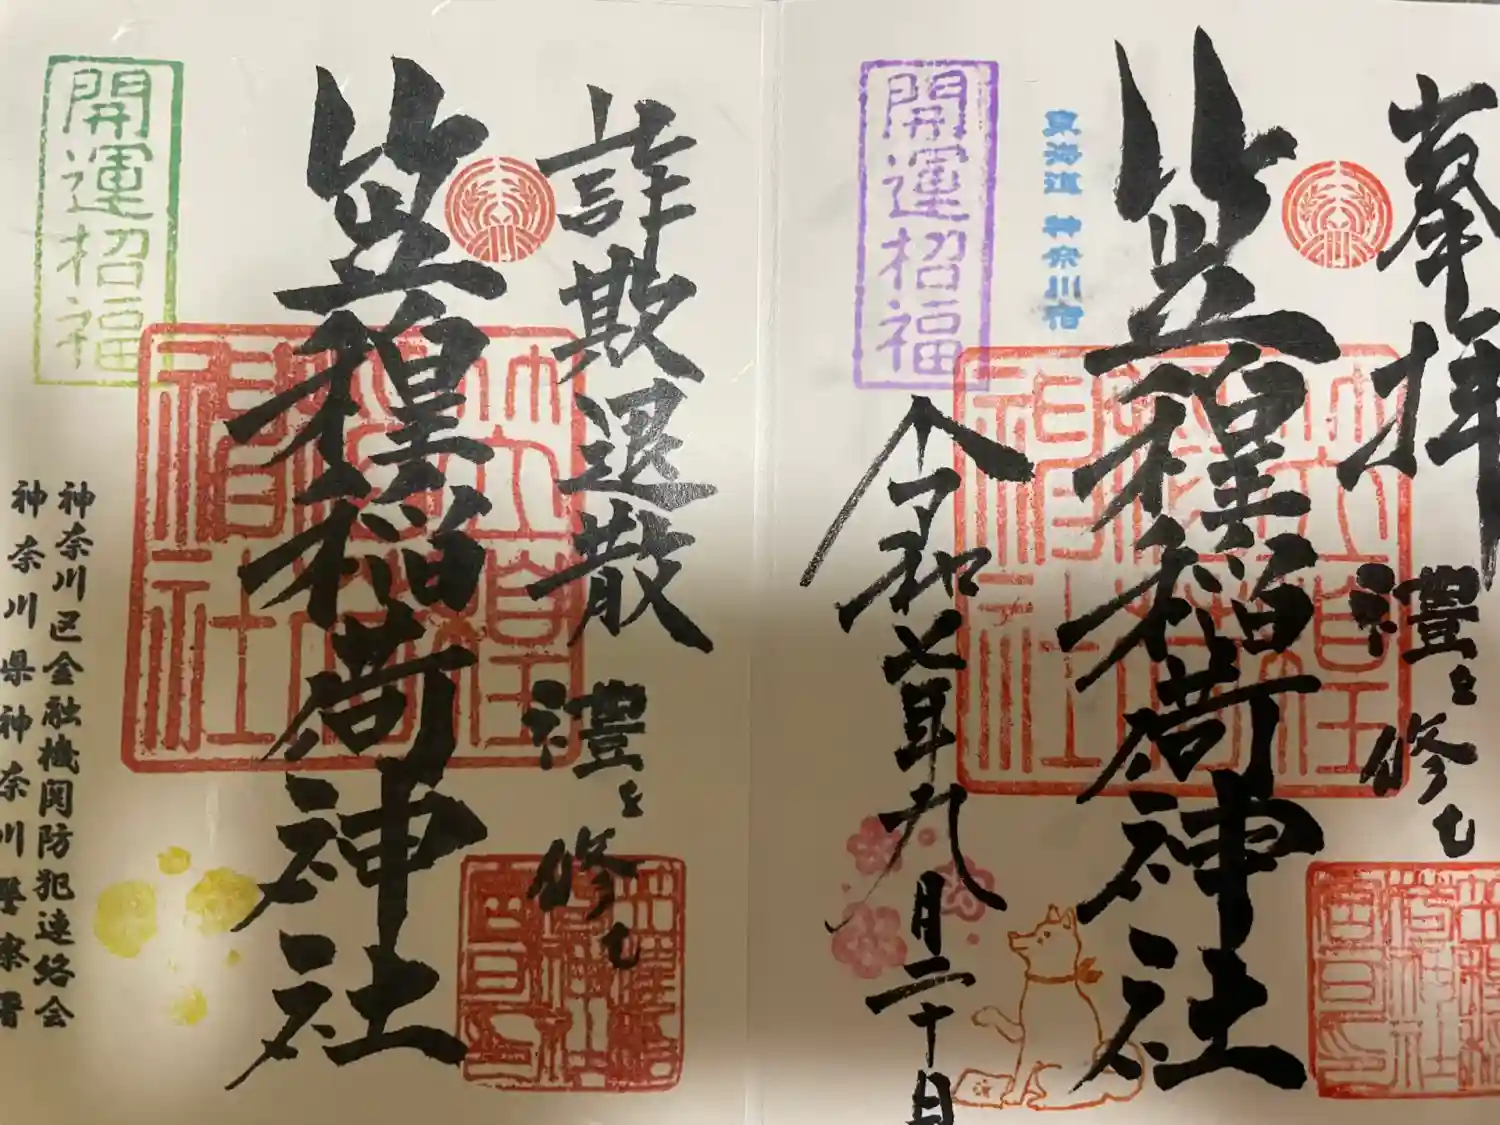 奉拝
禮を修む
笠䅣稲荷神社
東海道 神奈川宿
開運招福
令和七年九月二十日
詐欺退散
禮を修む
笠䅣稲荷神社
開運招福
神奈川区金融機関防犯連絡会
神奈川県神奈川警察署